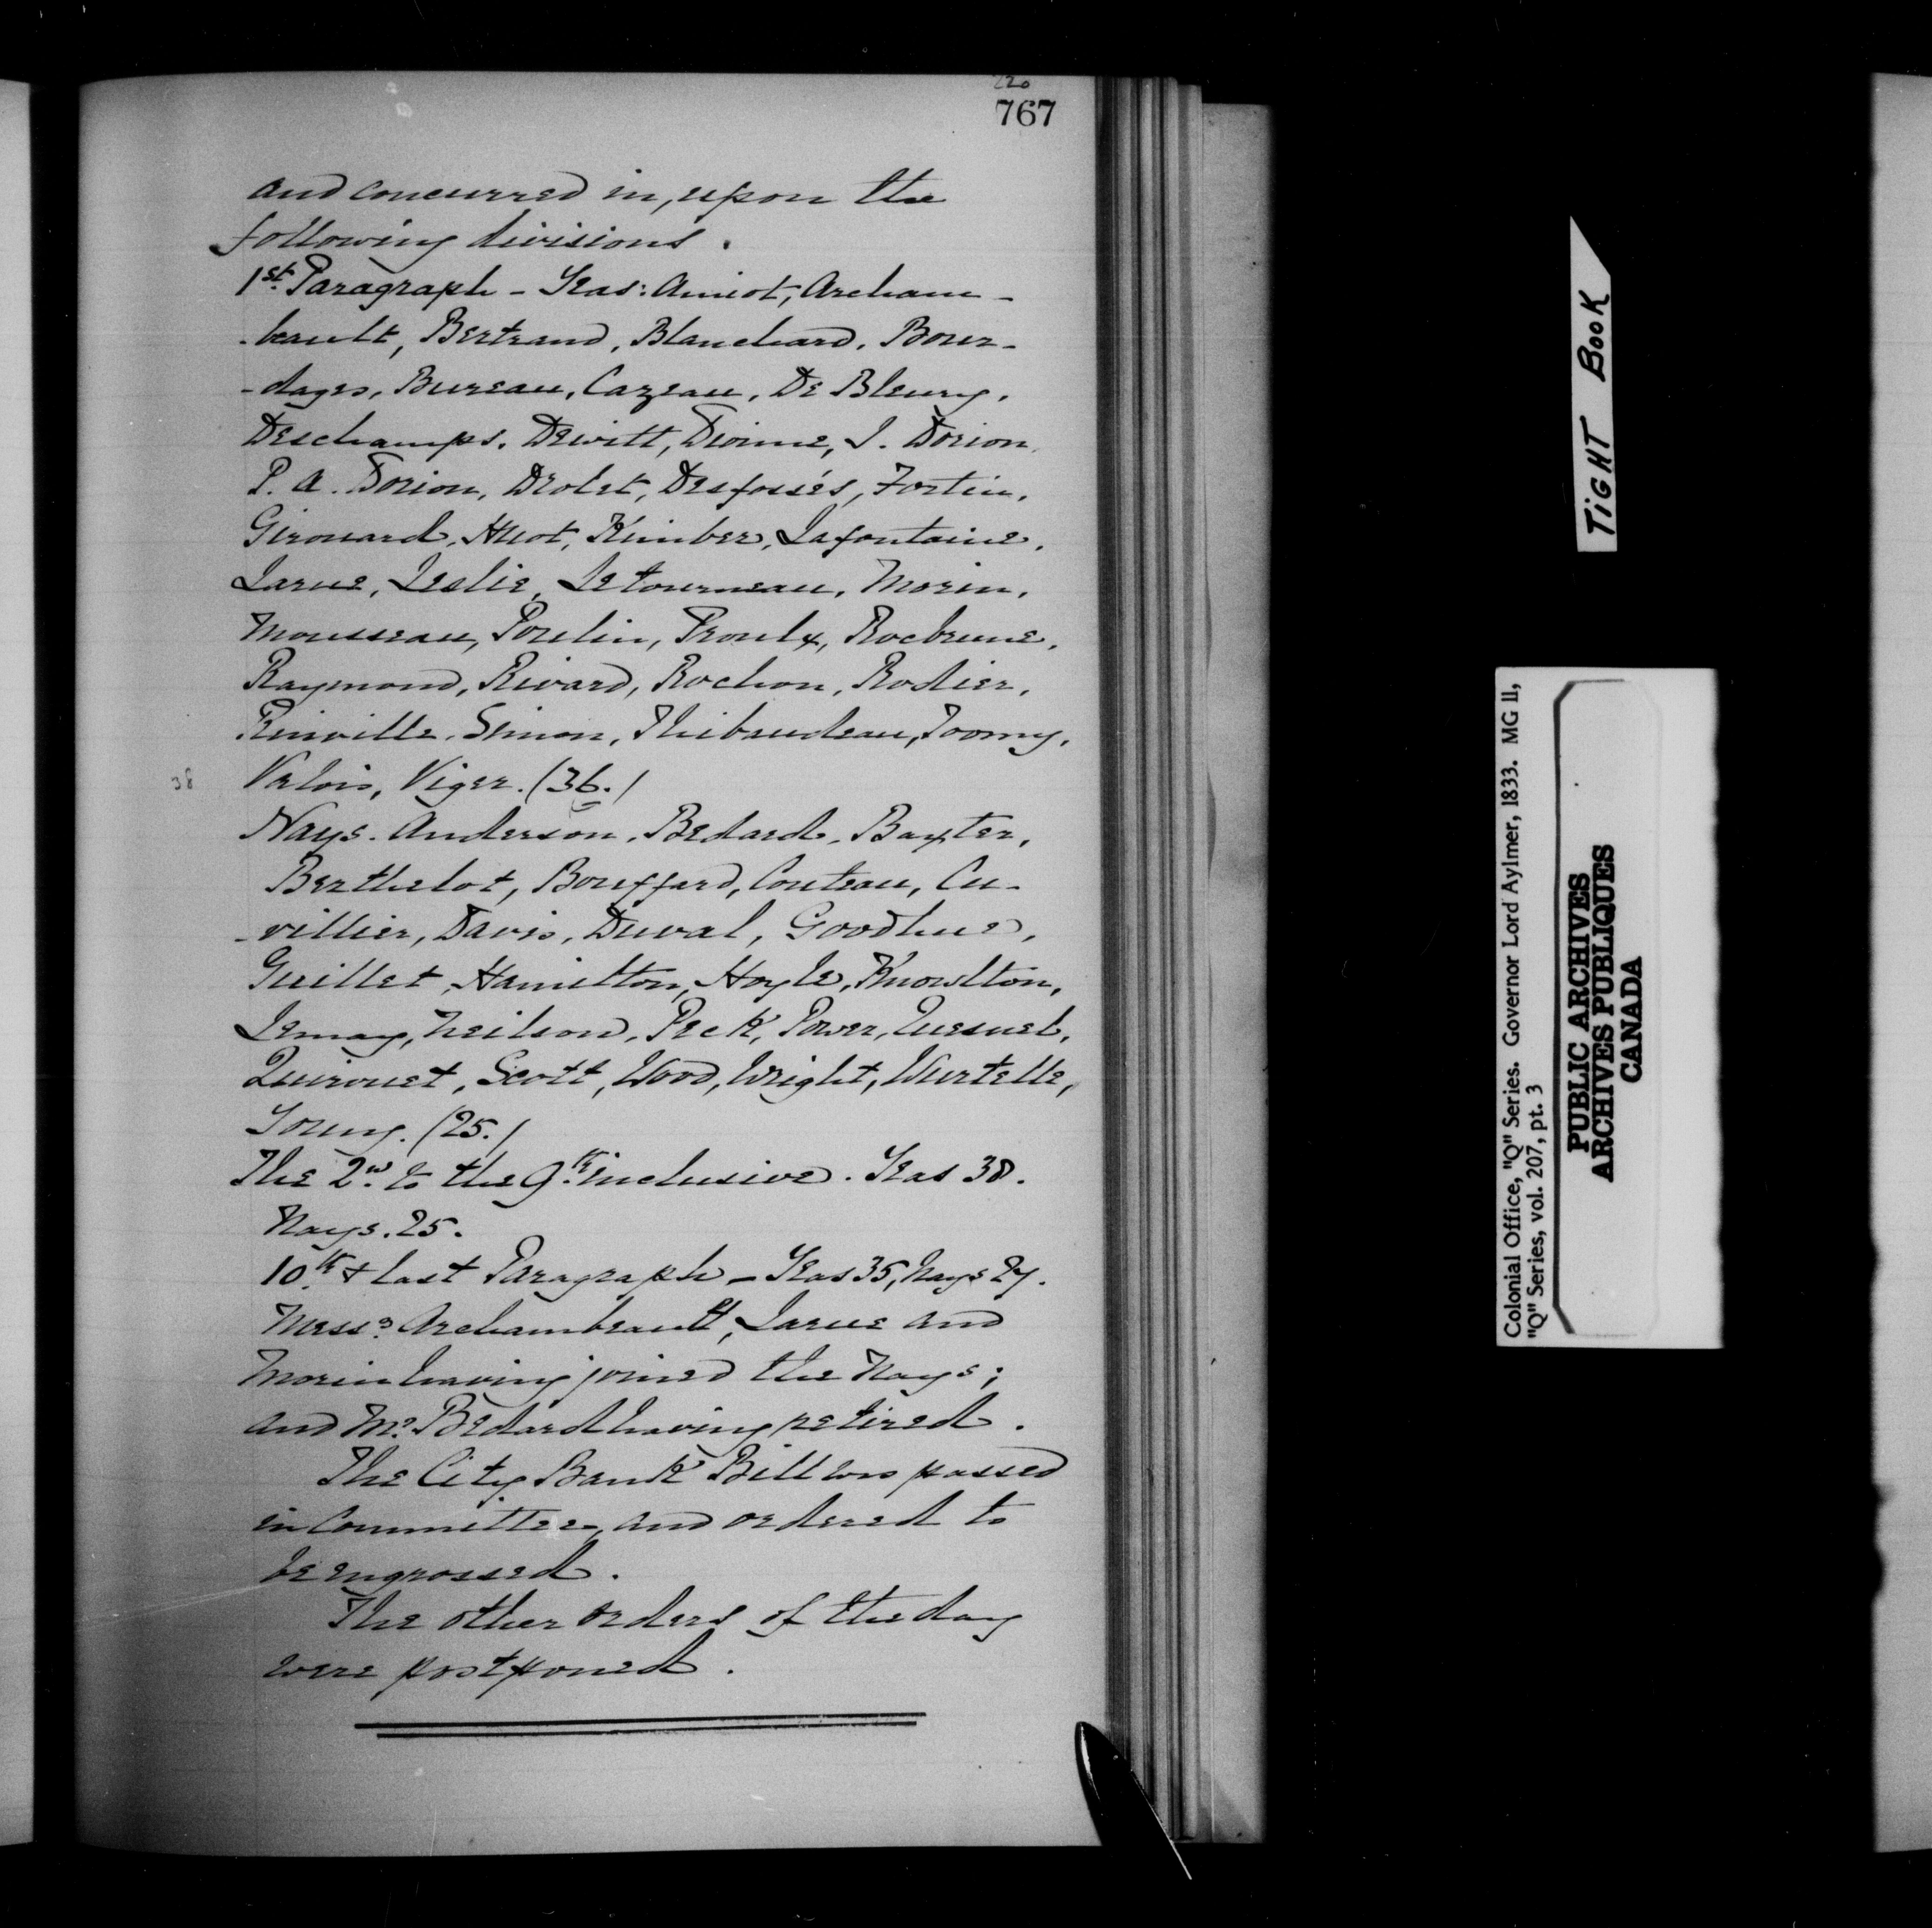 220
767
and concurred in, upon the
following divisions.
1st. Paragraph - Yeas: Amiot, Archam-
-beault, Bertrand, Blanchard, Bour-
-dages, Bureau, Cazeau, De Bleury,
Deschamps, Dewitt, Dionne, J. Dorion,
P. A. Dorion, Drolet, Desfossés, Fortin,
Girouard, Huot, Kimber, Lafontaine,
Larue, Leslie, Letourneau, Morin,
Mousseau, Poulin, Proulx, Rocbrune,
Raymond, Rivard, Rochon, Rodier,
Rinville, Simon, Thibaudeau, Toomy,
38
Valois, Viger. (36.)
Nays. Anderson, Bedard, Baxter,
Berthelot, Bouffard, Couteau, Cu-
-villier, Davis, Duval, Goodhue,
Guillet, Hamilton, Hoyle, Knowlton,
Lemay, Neilson, Peck, Power, Quesnel,
Quirouet, Scott, Wood, Wright, Wurtelle,
Young. (25.)
The 2nd. to the 9th. inclusive. Yeas 38.
Nays. 25.
10th. & last Paragraph - Yeas 35, Nays 27.
Messrs. Archambeault, Larue and
Morin having joined the Nays;
and Mr. Bedard having retired.
The City Bank Bill was passed
in Committee, and ordered to
be engrossed.
The other orders of the day
were postponed.
TIGHT BOOK
Colonial Office, "Q" Series. Governor Lord Aylmer, 1833. MG 11,
"Q" Series, vol. 207, pt. 3
PUBLIC ARCHIVES
ARCHIVES PUBLIQUES
CANADA